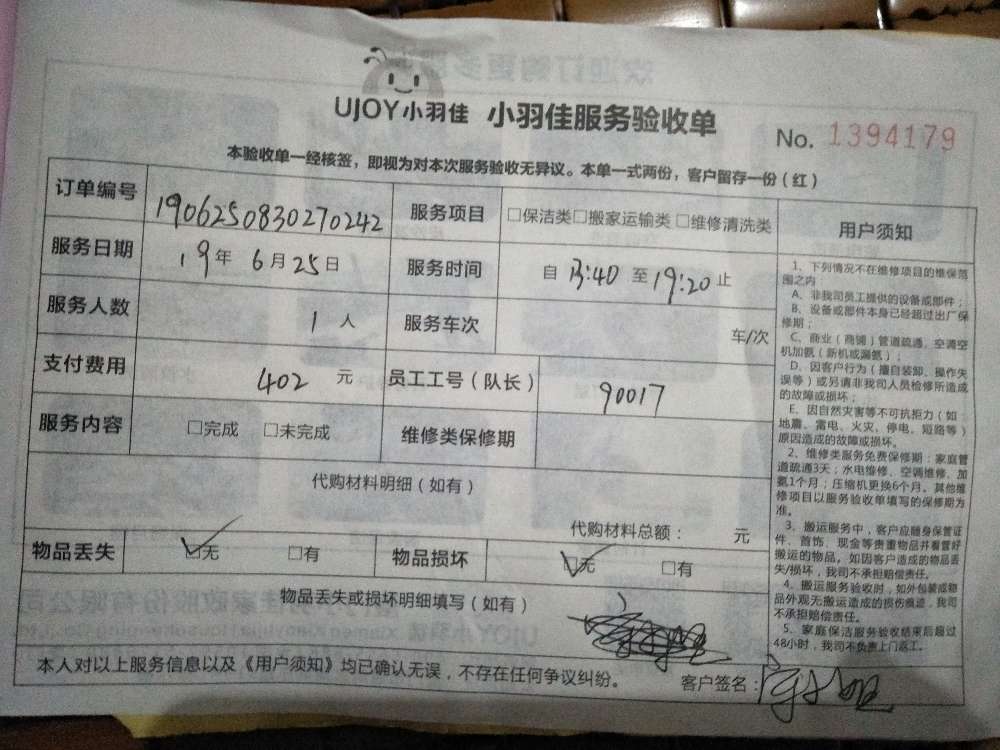 UJOY小羽佳 小羽佳服务验收单
No. 1394179
本验收单一经核签，即视为对本次服务验收无异议。本单一式两份，客户留存一份（红）
订单编号 190625083027​0242 服务项目 □保洁类□搬家运输类□维修清洗类
服务日期 19年 6月25日 服务时间 自 13:40 至 19:20 止
服务人数 1 人 服务车次 车/次
支付费用 402 元 员工工号（队长） 90017
服务内容 □完成 □未完成 维修类保修期
代购材料明细（如有）
代购材料总额： 元
物品丢失 ☑无 □有 物品损坏 ☑无 □有
物品丢失或损坏明细填写（如有）
本人对以上服务信息以及《用户须知》均已确认无误，不存在任何争议纠纷。
客户签名：
用户须知
1、下列情况不在维修项目的维保范
围之内
A、非我司员工提供的设备或部件；
B、设备或部件本身已经超过出厂保
修期；
C、商业（商铺）管道疏通，空调空
机加氨（新机或漏氨）；
D、因客户行为（擅自装卸、操作失
误等）或另请非我司人员检修所造成
的故障或损坏；
E、因自然灾害等不可抗拒力（如：
地震、雷电、火灾、停电、短路等）
原因造成的故障或损坏。
2、维修类服务免费保修期：家庭管
道疏通3天；水电维修、空调维修、加
氨1个月；压缩机更换6个月。其他维
修项目以服务验收单填写的保修期为
准。
3、搬运服务中，客户应随身保管证
件、首饰、现金等贵重物品并看管好
搬运的物品。如因客户造成的物品丢
失/损坏，我司不承担赔偿责任。
4、搬运服务验收时，如外包装或物
品外观无搬运造成的损伤痕迹，我司
不承担赔偿责任。
5、家庭保洁服务验收结束后超过
48小时，我司不负责上门返工。